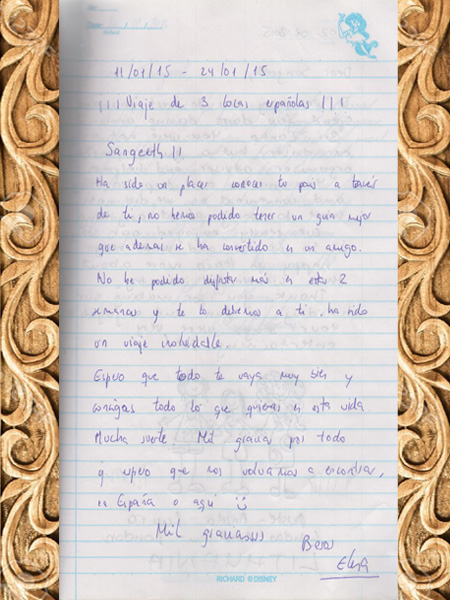 11/01/15 - 24/01/15
¡¡¡Viaje de 3 locas españolas!!!
Sangeeth!!
Ha sido un placer conocer tu país a través
de ti, no hemos podido tener un guía mejor
que además se ha convertido en un amigo.
No he podido disfrutar más en estas 2
semanas y te lo debemos a ti, ha sido
un viaje inolvidable.
Espero que todo te vaya muy bien y
consigas todo lo que quieras en esta vida
Mucha suerte. Mil gracias por todo
y espero que nos volvamos a encontrar,
en España o aquí :)
Mil graciasss
Besos
Elena
RICHARD ©DISNEY